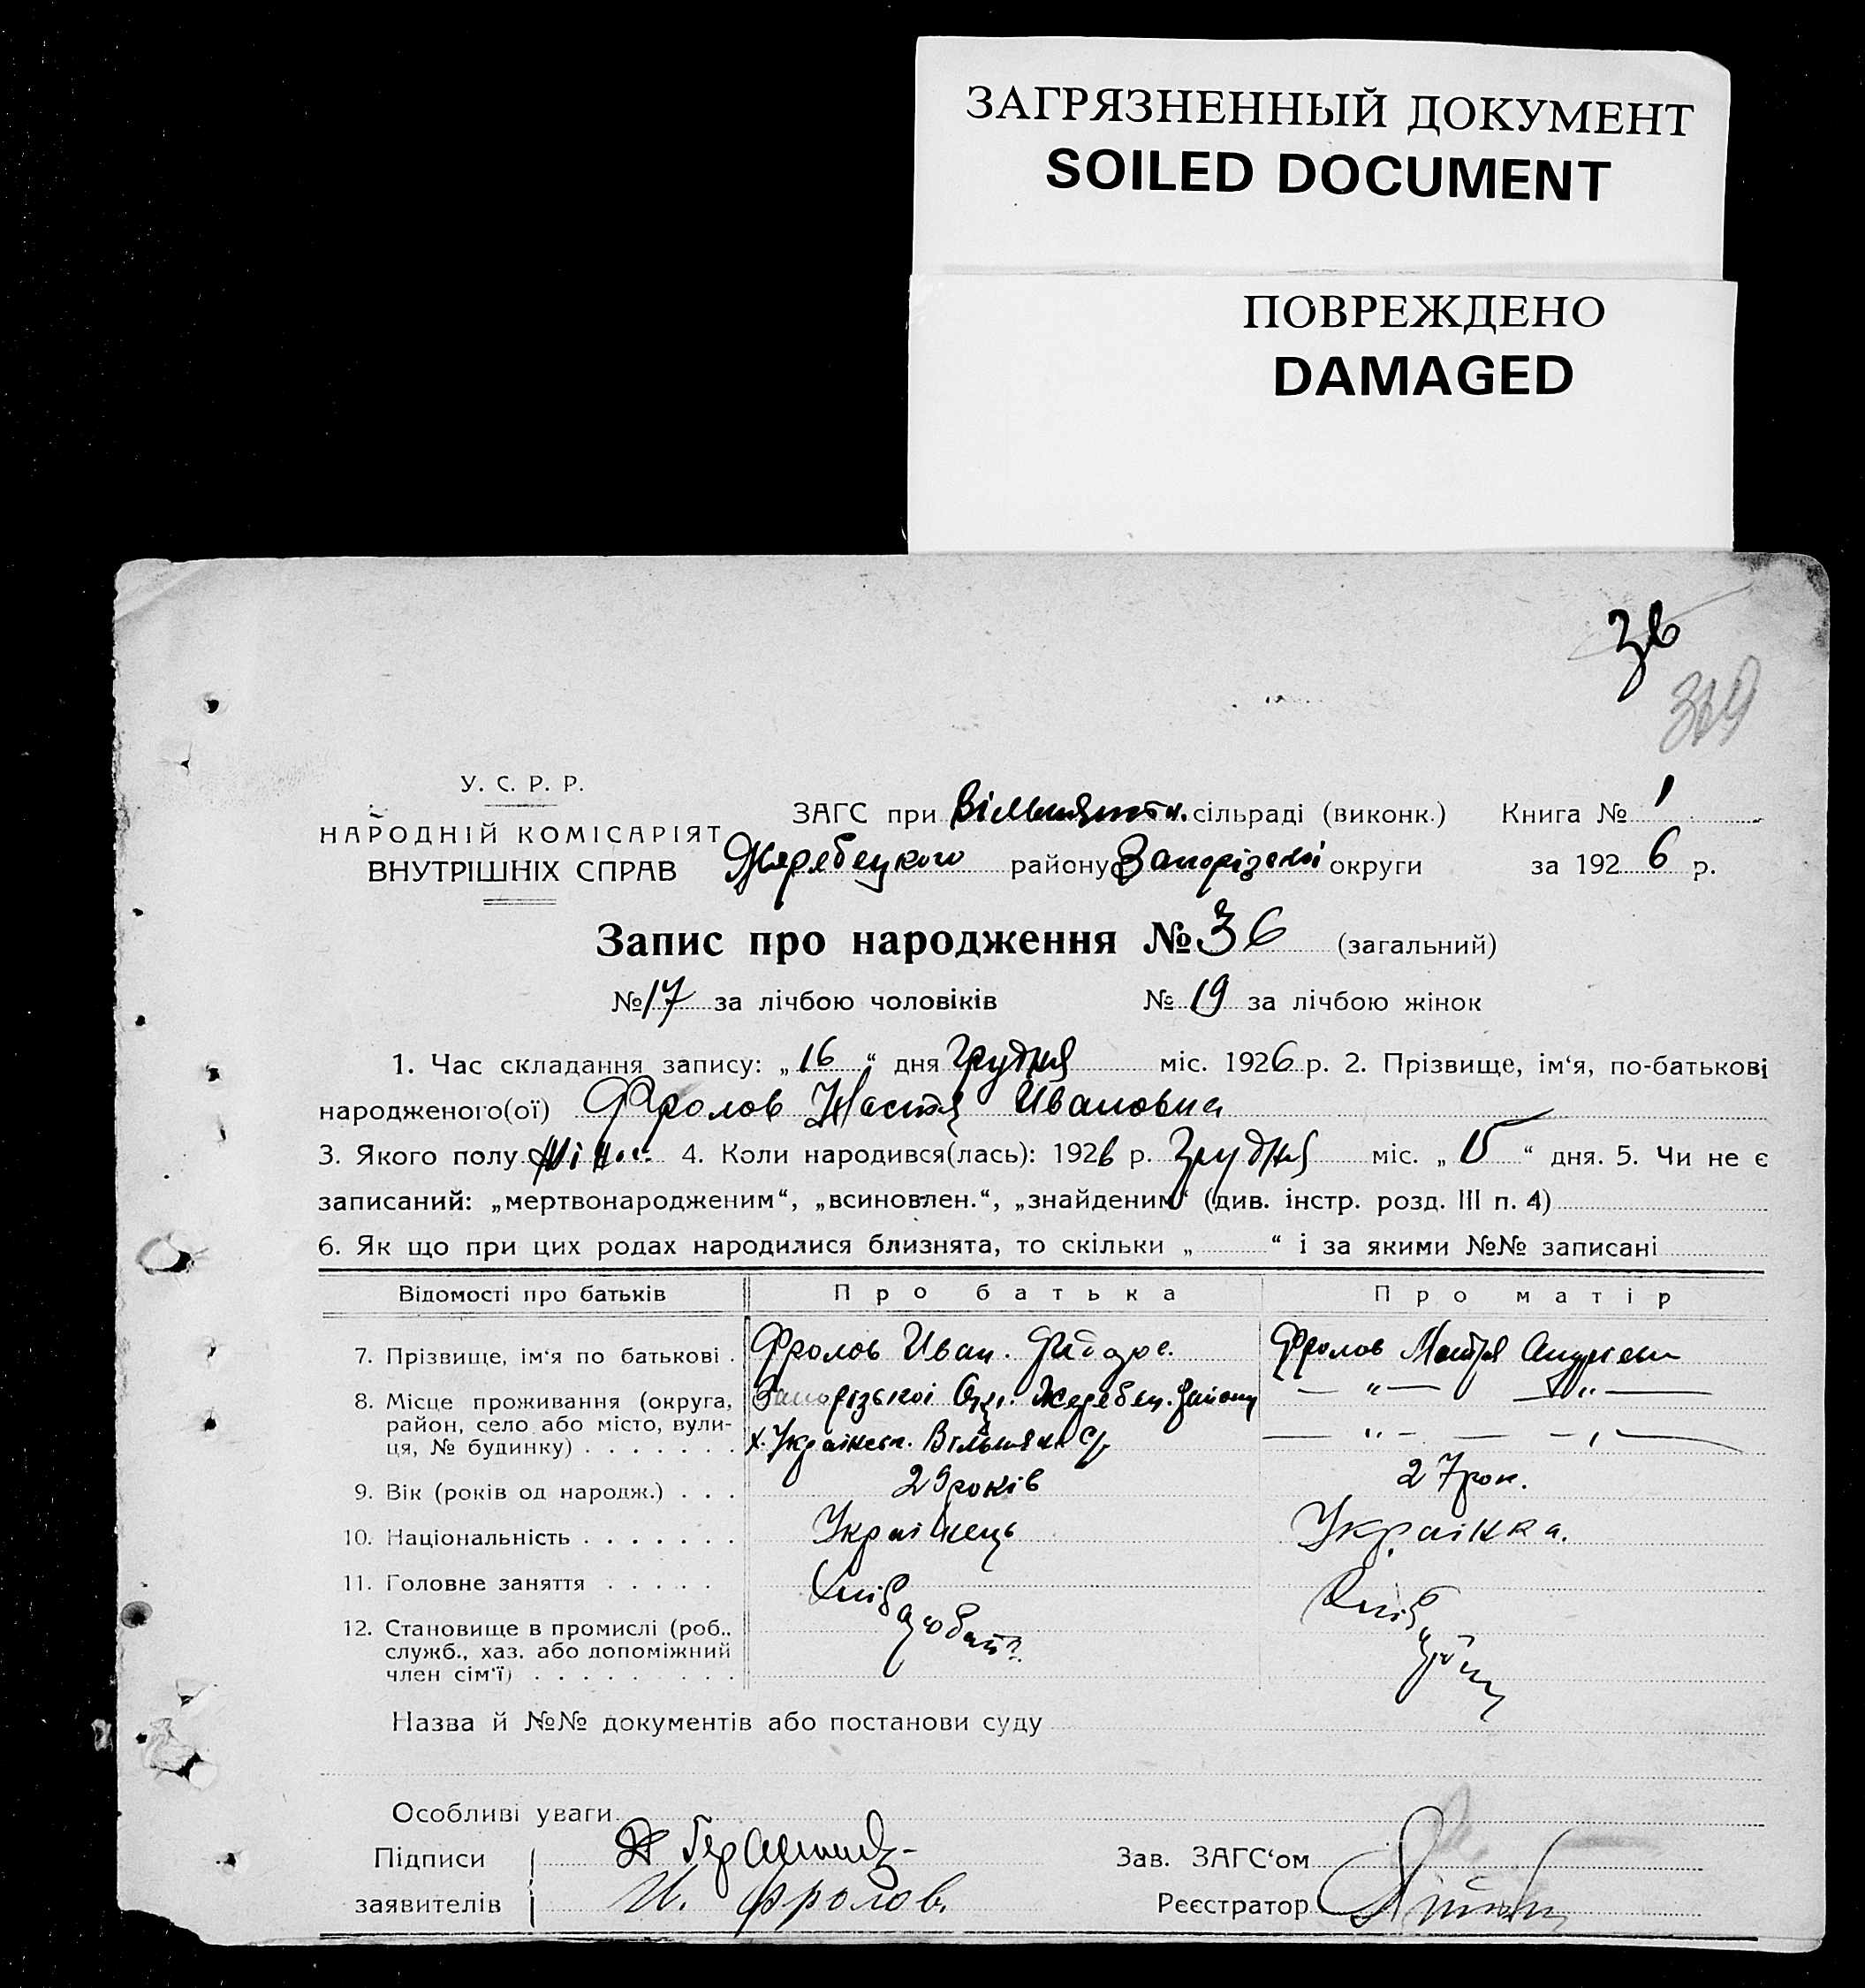 ЗАГРЯЗНЕННЫЙ ДОКУМЕНТ
SOILED DOCUMENT
ПОВРЕЖДЕНО
DAMAGED
36
У. С. Р. Р.
НАРОДНІЙ КОМІСАРІЯТ
ВНУТРІШНІХ СПРАВ
ЗАГС при сільраді (виконк.) Книга № 1
Жеребецкого району Запорізскої округи за 1926 р.
Запис про народження № 36 (загальний)
№ 17 за лічбою чоловіків № 19 за лічбою жінок
1. Час складання запису: „16“ дня Грудня міс. 1926 р. 2. Прізвище, ім‘я, по-батькові
народженого(ої) Фролов Настя Ивановна
3. Якого полу 4. Коли народився(лась): 1926 р. Грудня міс. „15“ дня. 5. Чи не є
записаний: „мертвонародженим“, „всиновлен.“, „знайденим“ (див. інстр. розд. III п. 4)
6. Як що при цих родах народилися близнята, то скільки „ “ і за якими №№ записані
Відомості про батьків Про батька Про матір
7. Прізвище, ім‘я по батькові . Фролов Иван. Фролов
8. Місце проживання (округа, Запорізької Окр. Жеребец. району — „ — — „ —
район, село або місто, вули-
ця, № будинку) . . . . . . . х. Українськ. — „ — — „ —
9. Вік (років од народж.) . . . 29 років 27 рок.
10. Національність . . . . . . . Українець Українка.
11. Головне заняття . . . . . Хліб Хліб
12. Становище в промислі (роб.,
служб., хаз. або допоміжний
член сім‘ї) . . . . . . . .
Назва й №№ документів або постанови суду
Особливі уваги
Підписи Зав. ЗАГС‘ом
заявителів И. Фролов. Реєстратор